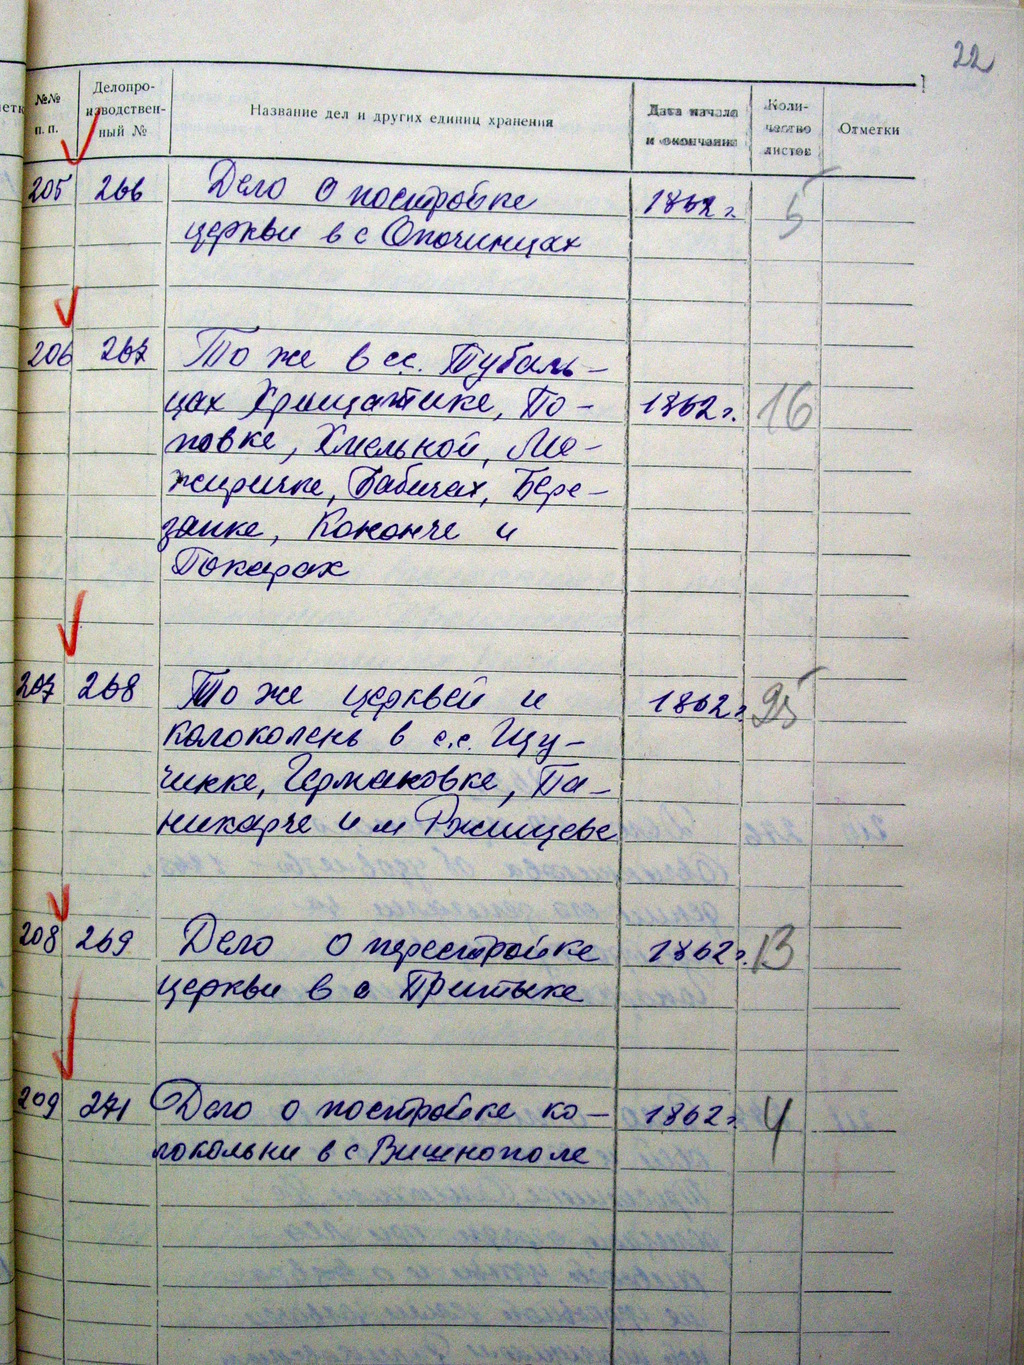 22
№№ п. п.
Делопро-
изводствен-
ный №
Название дел и других единиц хранения
Дата начала
и окончания
Коли-
чество
листов
Отметки
205 266 Дело о постройке 1862 г. 5
церкви в с Опочинцах
206 267 То же в сс. Тубаль-
цах Хрещатике, По- 1862 г. 16
повке, Хмельной, Ме-
жиричке, Бабичах, Бере-
занке, Кононче и
Покарах
207 268 То же церквей и 1862 г. 25
колоколень в с.с. Щу-
чинке, Германовке, Па-
никарче и м Ржищеве
208 269 Дело о перестройке 1862 г. 13
церкви в с Притыке
209 271 Дело о постройке ко- 1862 г. 4
локольни в с Вишнополе